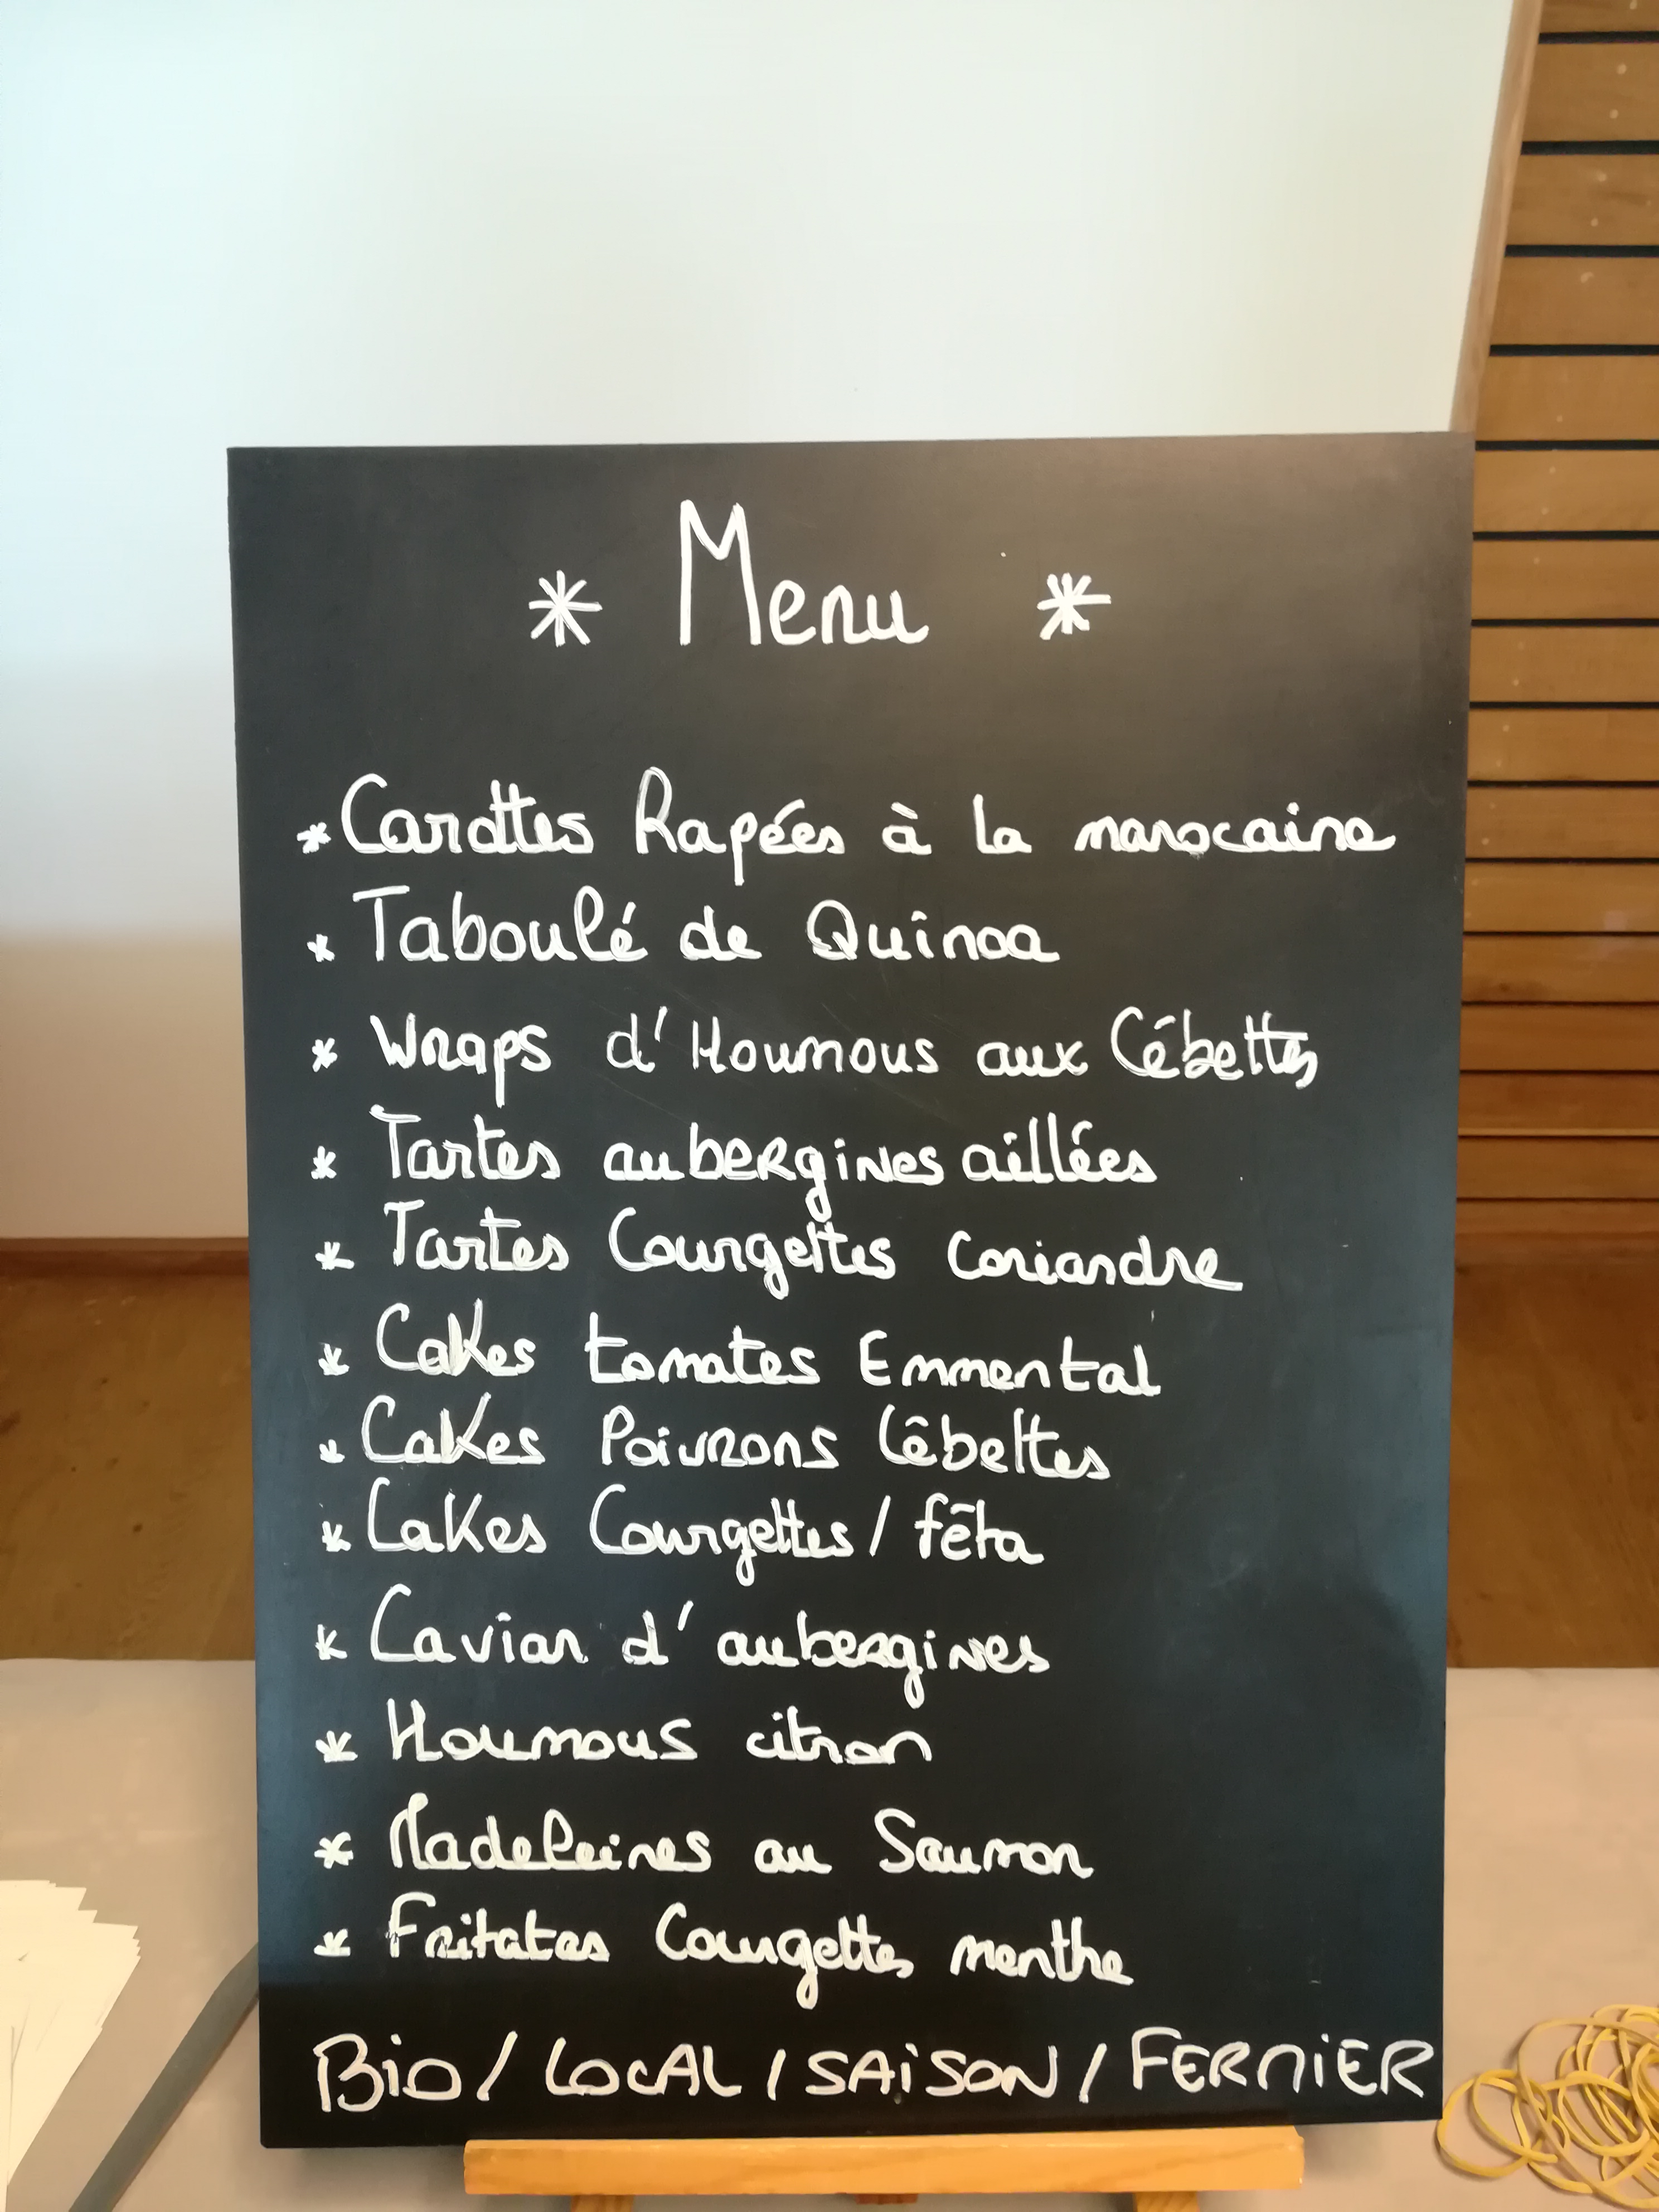 * Menu *
* Carottes Rapées à la marocaine
* Taboulé de Quinoa
* Wraps d'Houmous aux Cébettes
* Tartes aubergines aillées
* Tartes Courgettes Coriandre
* Cakes tomates Emmental
* Cakes Poivrons Cêbettes
* Cakes Courgettes / fêta
* Caviar d'aubergines
* Houmous citron
* Madeleines au Saumon
* Fritates Courgettes menthe
BiO / LOCAL / SAiSON / FERMiER